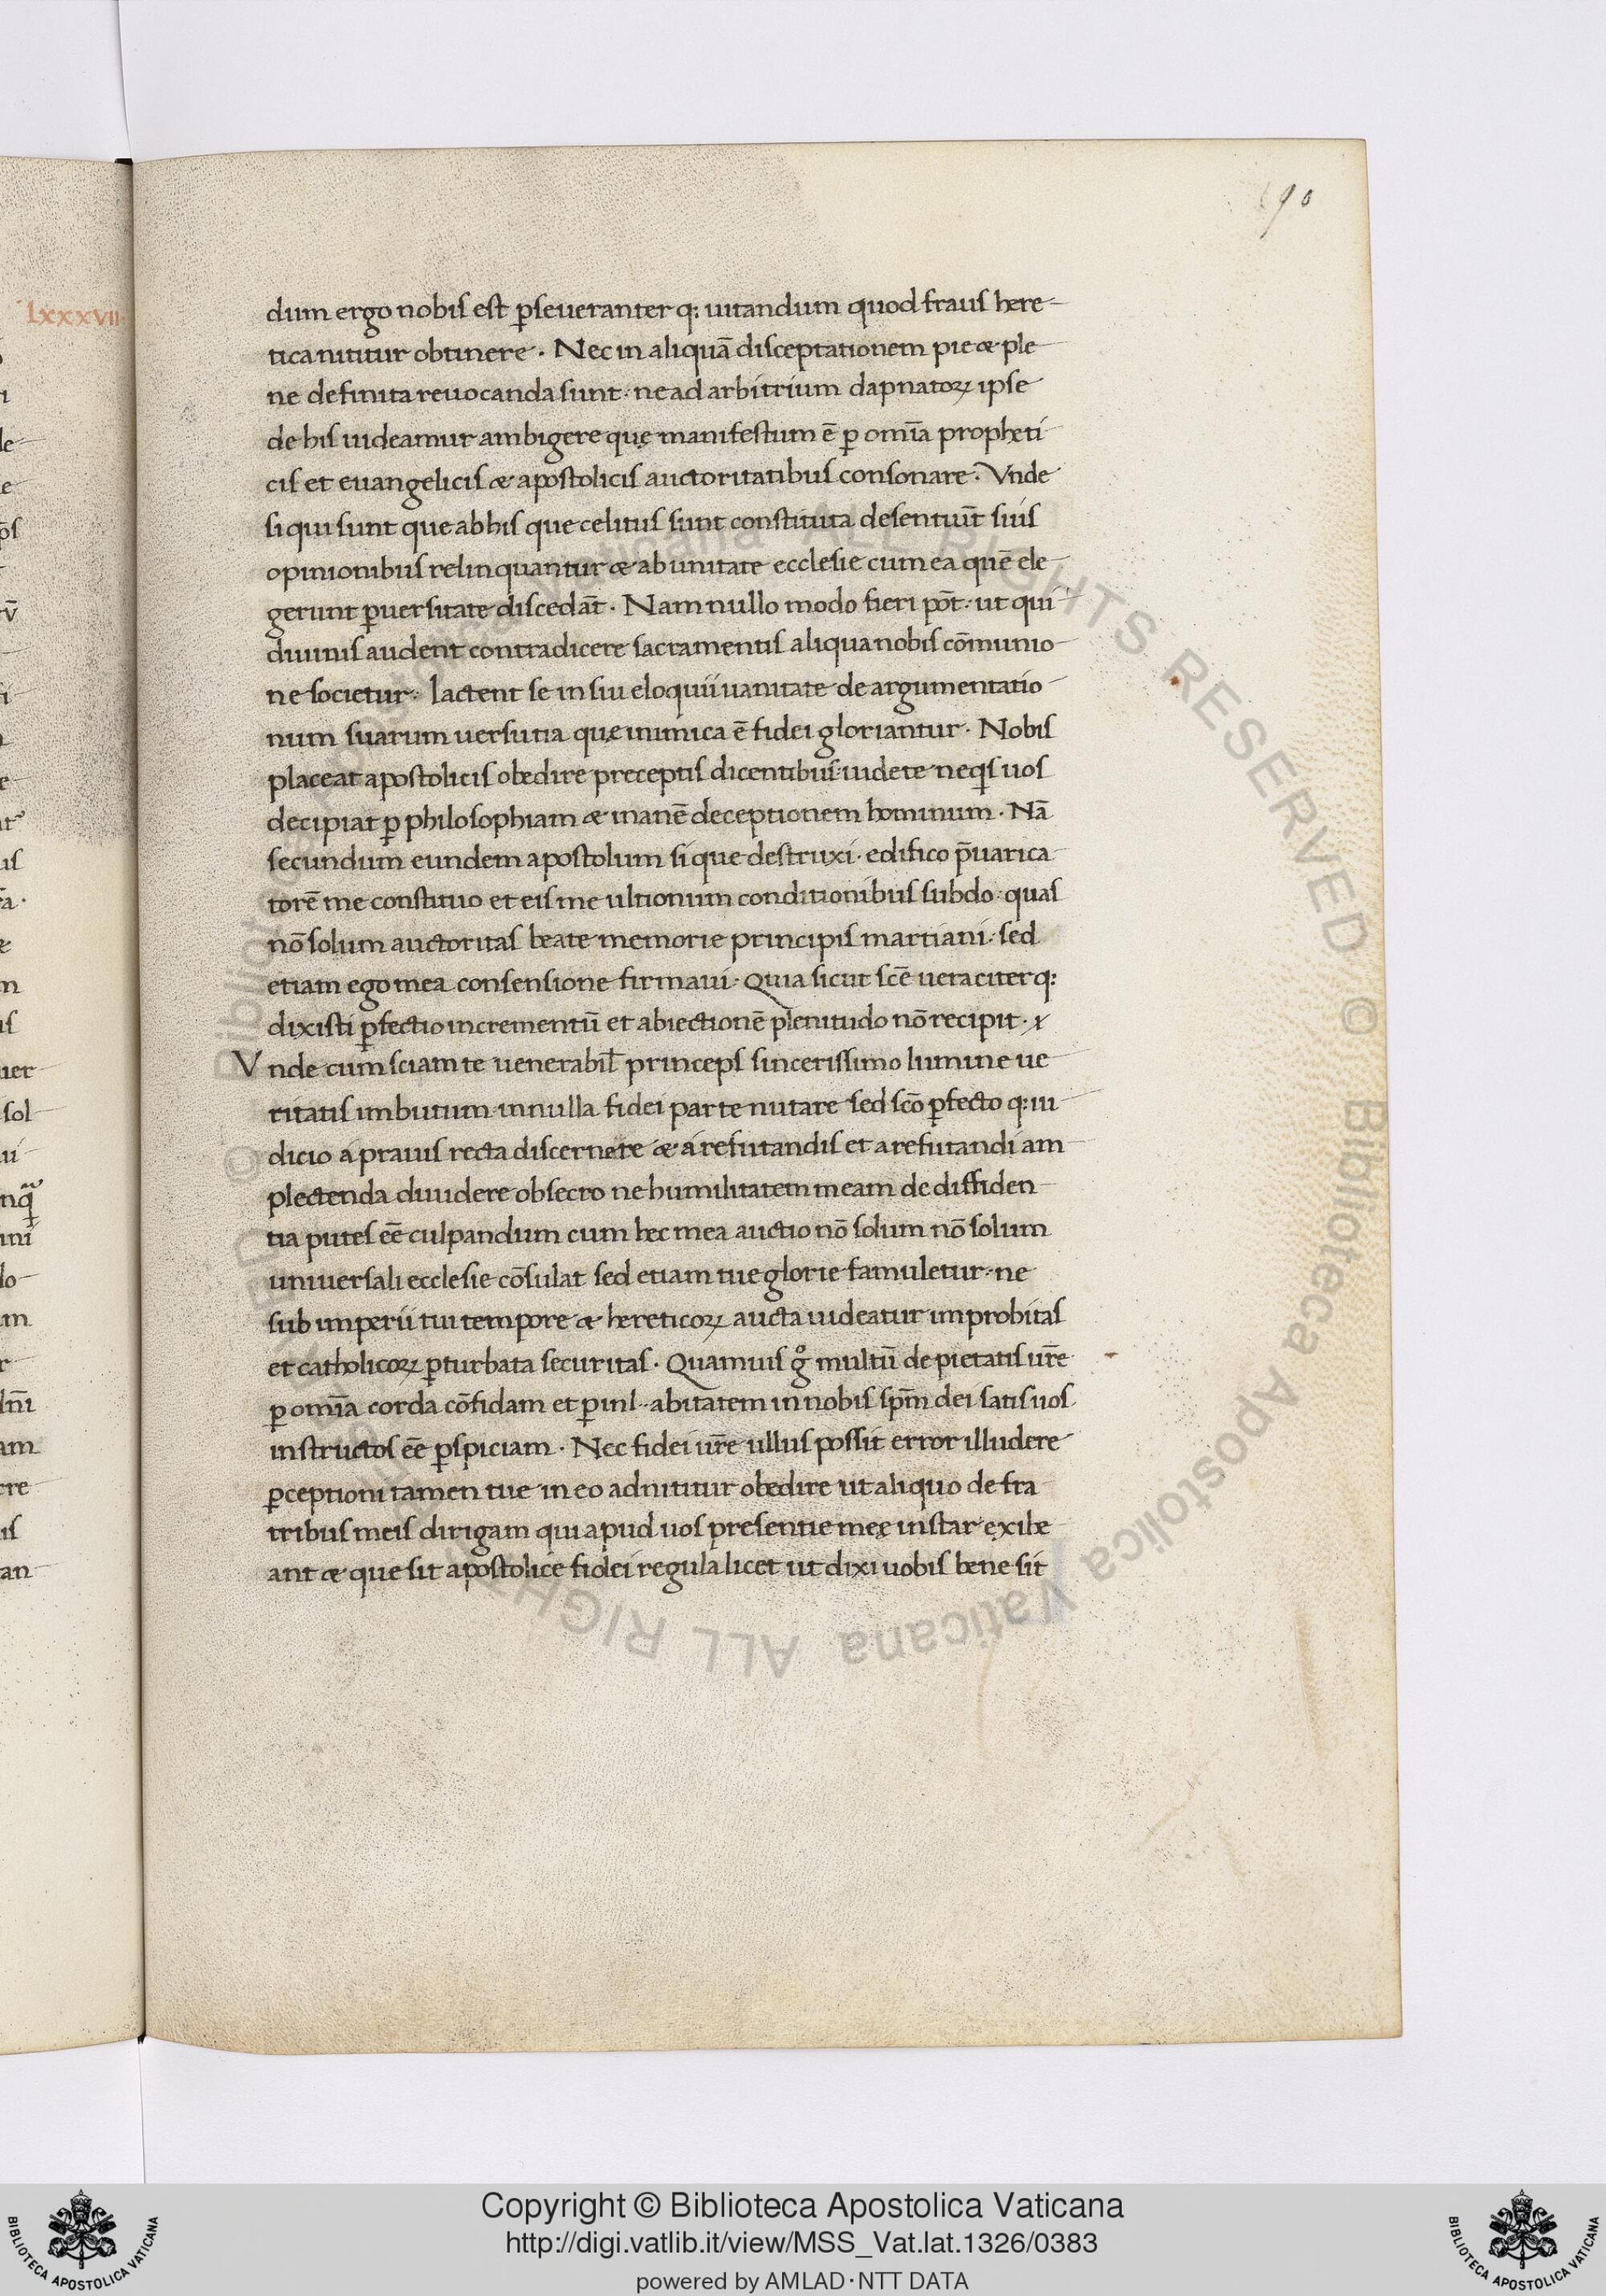 190
LXXXVII
dum ergo nobis est ꝑseueranter q: uitandum quod fraus here-
tica nititur obtinere. Nec in aliquā disceptationem pie & ple
ne definita reuocanda sunt. ne ad arbitrium dapnatoꝝ ipse
de his uideamur ambigere quę manifestum ē ꝑ om̄ia propheti
cis et euangelicis & apostolicis auctoritatibus consonare. Vnde
si qui sunt que ab his que celitus sunt constituta desentiūt suis
opinionibus relinquantur & ab unitate ecclesie cum ea quē ele
gerunt ꝑuersitate discedāt. Nam nullo modo fieri pōt. ut qui
diuinis audent contradicere sacramentis aliqua nobis cōmunio
ne societur. Iactent se in siu eloquii uanitate de argumentatio
num suarum uersutia quę inimica ē fidei gloriantur. Nobis
placeat apostolicis obedire preceptis dicentibus. uidete ne qis uos
decipiat ꝑ philosophiam & inanē deceptionem hominum. Nā
secundum eundem apostolum si que destruxi. edifico p̄uarica
torē me constituo et eis me ultionum conditionibus subdo. quas
nō solum auctoritas beate memorie principis martiani. sed
etiam ego mea consensione firmaui. Quia sicut scē ueraciter q:
dixisti ꝑfectio incrementū et abiectionē plenitudo nō recipit.
Vnde cum sciam te uenerabil̄ princeps sincerissimo lumine ue
ritatis imbutum in nulla fidei parte nutare sed scō ꝑfecto q: iu
dicio a prauis recta discernere & a refutandis et a refutandi am
plectenda diuidere obsecro ne humilitatem meam de diffiden
tia putes eē culpandum cum hec mea auctio nō solum nō solum
uniuersali ecclesie cōsulat sed etiam tue glorie famuletur. ne
sub imperii tui tempore & hereticoꝝ aucta uideatur improbitas
et catholicoꝝ ꝑturbata securitas. Quamuis gͦ multū de pietatis ur̄e
ꝑ om̄ia corda cōfidam et ꝑ inl..abitatem in nobis sp̄m dei satis uos
instructos eē ꝑspiciam. Nec fidei ur̄e ullus possit error illudere
ꝑceptioni tamen tue in eo adnititur obedire ut aliquo de fra
tribus meis dirigam qui apud uos presentie meę instar exibe
ant & que sit apostolice fidei regula licet ut dixi uobis bene sit
Copyright © Biblioteca Apostolica Vaticana
http://digi.vatlib.it/view/MSS_Vat.lat.1326/0383
powered by AMLAD·NTT DATA
BIBLIOTECA APOSTOLICA VATICANA
BIBLIOTECA APOSTOLICA VATICANA
© Biblioteca Apostolica Vaticana ALL RIGHTS RESERVED